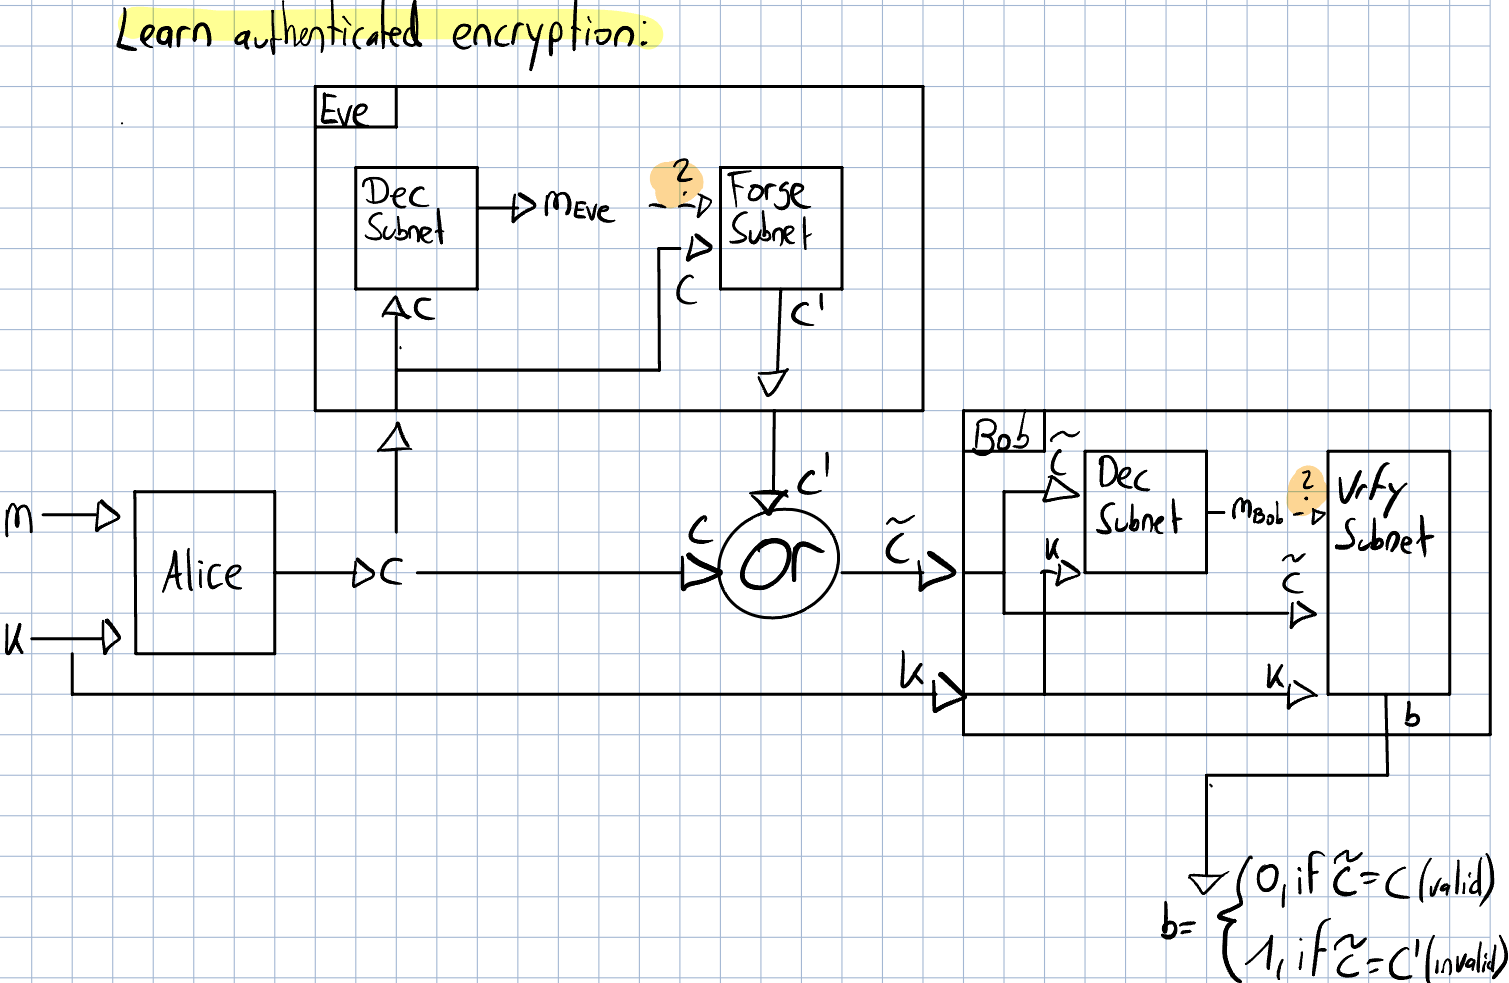 Learn authenticated encryption:
Eve
Dec
Subnet
m_Eve
?
Forge
Subnet
C
C
C'
C'
M
K
Alice
C
C
Or
C̃
K
Bob
C̃
K
Dec
Subnet
m_Bob
?
Vrfy
Subnet
C̃
K
b
b= { 0, if C̃ = C (valid)
1, if C̃ = C' (invalid)